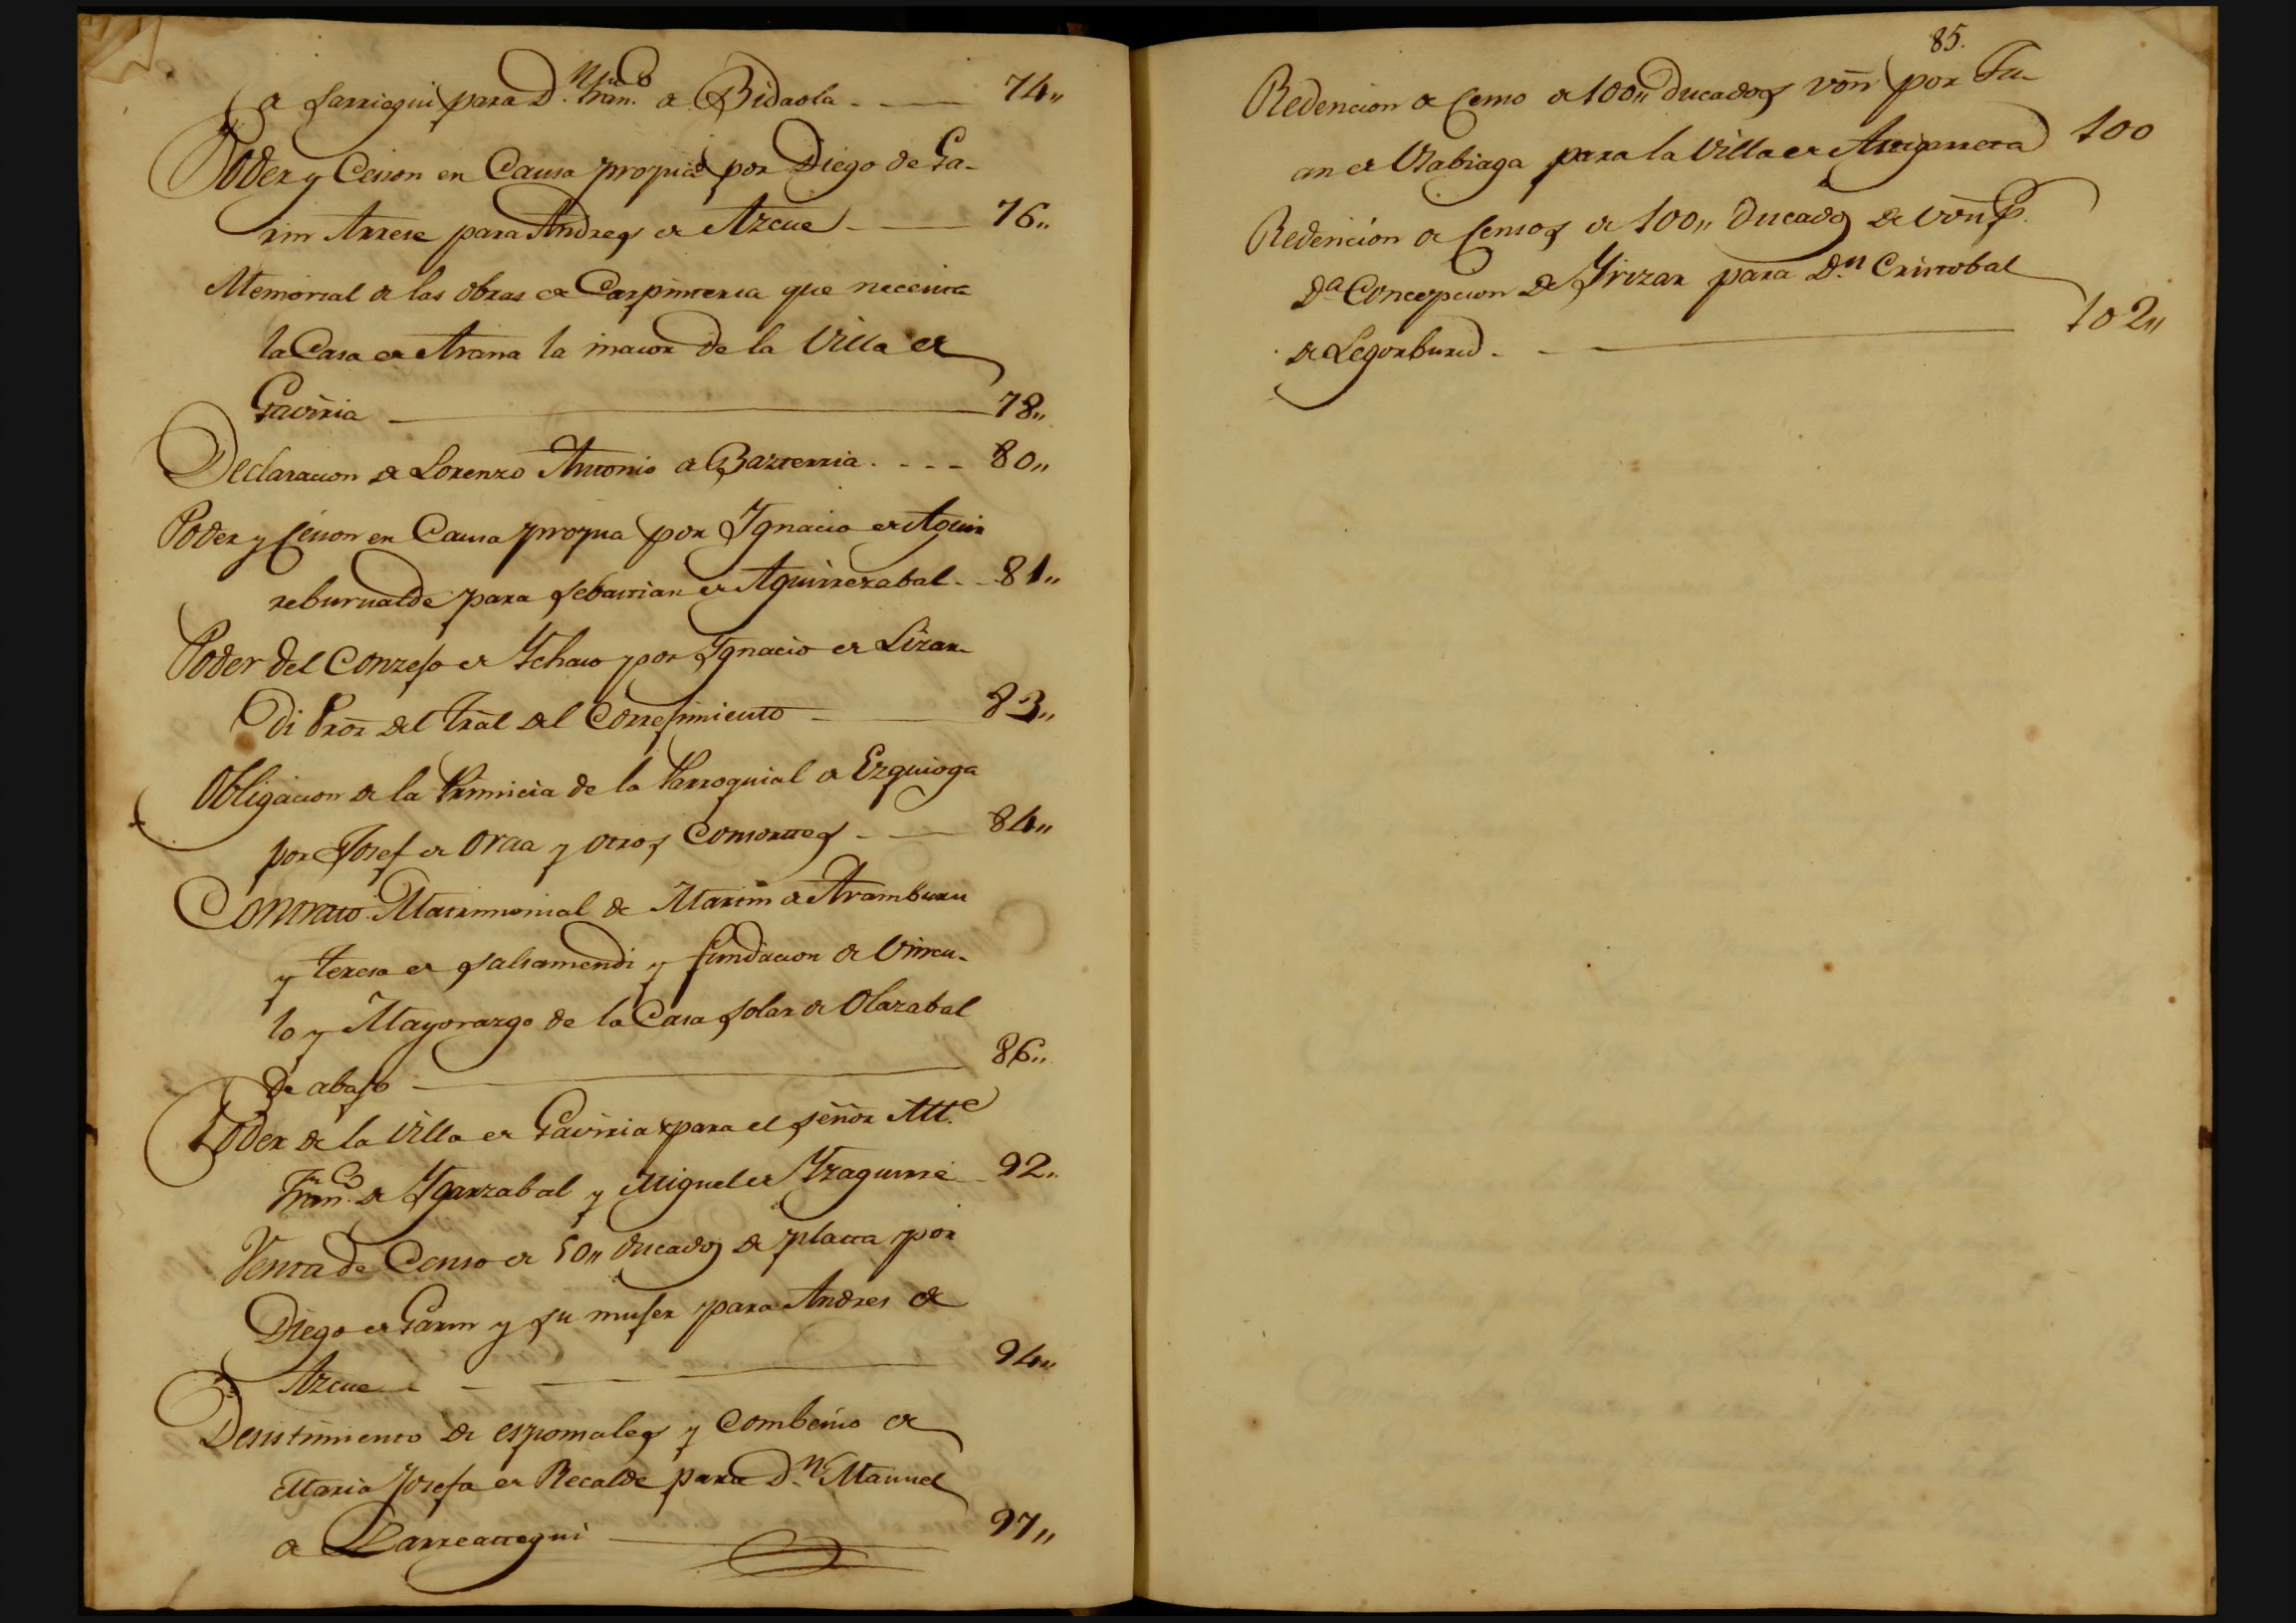 de Sarriegui para D.n Fran.co de Bidaola 74,,
Poder y Cesion en Causa propia por Diego de Ga-
rin Arrese para Andres de Azcue 76,,
Memorial de las obras de Carpinteria que necesita
la Casa de Arana la maior de la Villa de
Gaviria 78,,
Declaracion de Lorenzo Antonio de Bazterria 80,,
Poder y Cesion en Causa propia por Ignacio de Aguir
reburualde para Sebastian de Aguirrezabal 81,,
Poder del Conzejo de Ychaso por Ygnacio de Lizar-
di Pror. del tral del Correjimiento 83,,
Obligacion de la Primicia de la Parroquial de Ezquioga
por Josef de Oraa y otros Consortes 84,,
Contrato Matrimonial de Martin de Aramburu
y Teresa de Salsamendi y fundacion de Vincu-
lo y Mayorazgo de la Casa Solar de Olazabal
de abajo 86,,
Poder de la Villa de Gaviria para el señor Alt.e
Fran.co de Ygarzabal y Miguel de Yzaguirre 92,,
Venta de Censo de 50,, ducados de platta por
Diego de Garin y su mujer para Andres de
Azcue 94,,
Desistimiento de esponsales y Combenio de
Maria Josefa de Recalde para D.n Manuel
de Larreategui 97,,
85.
Redencion de Censo de 100,, Ducados von por Ju-
an de Urabiaga para la Villa de Astigarreta 100
Redencion de Censos de 100,, Ducados de von p.
D.a Concepcion de Yrizar para D.n Cristobal
de Legorburu 102,,